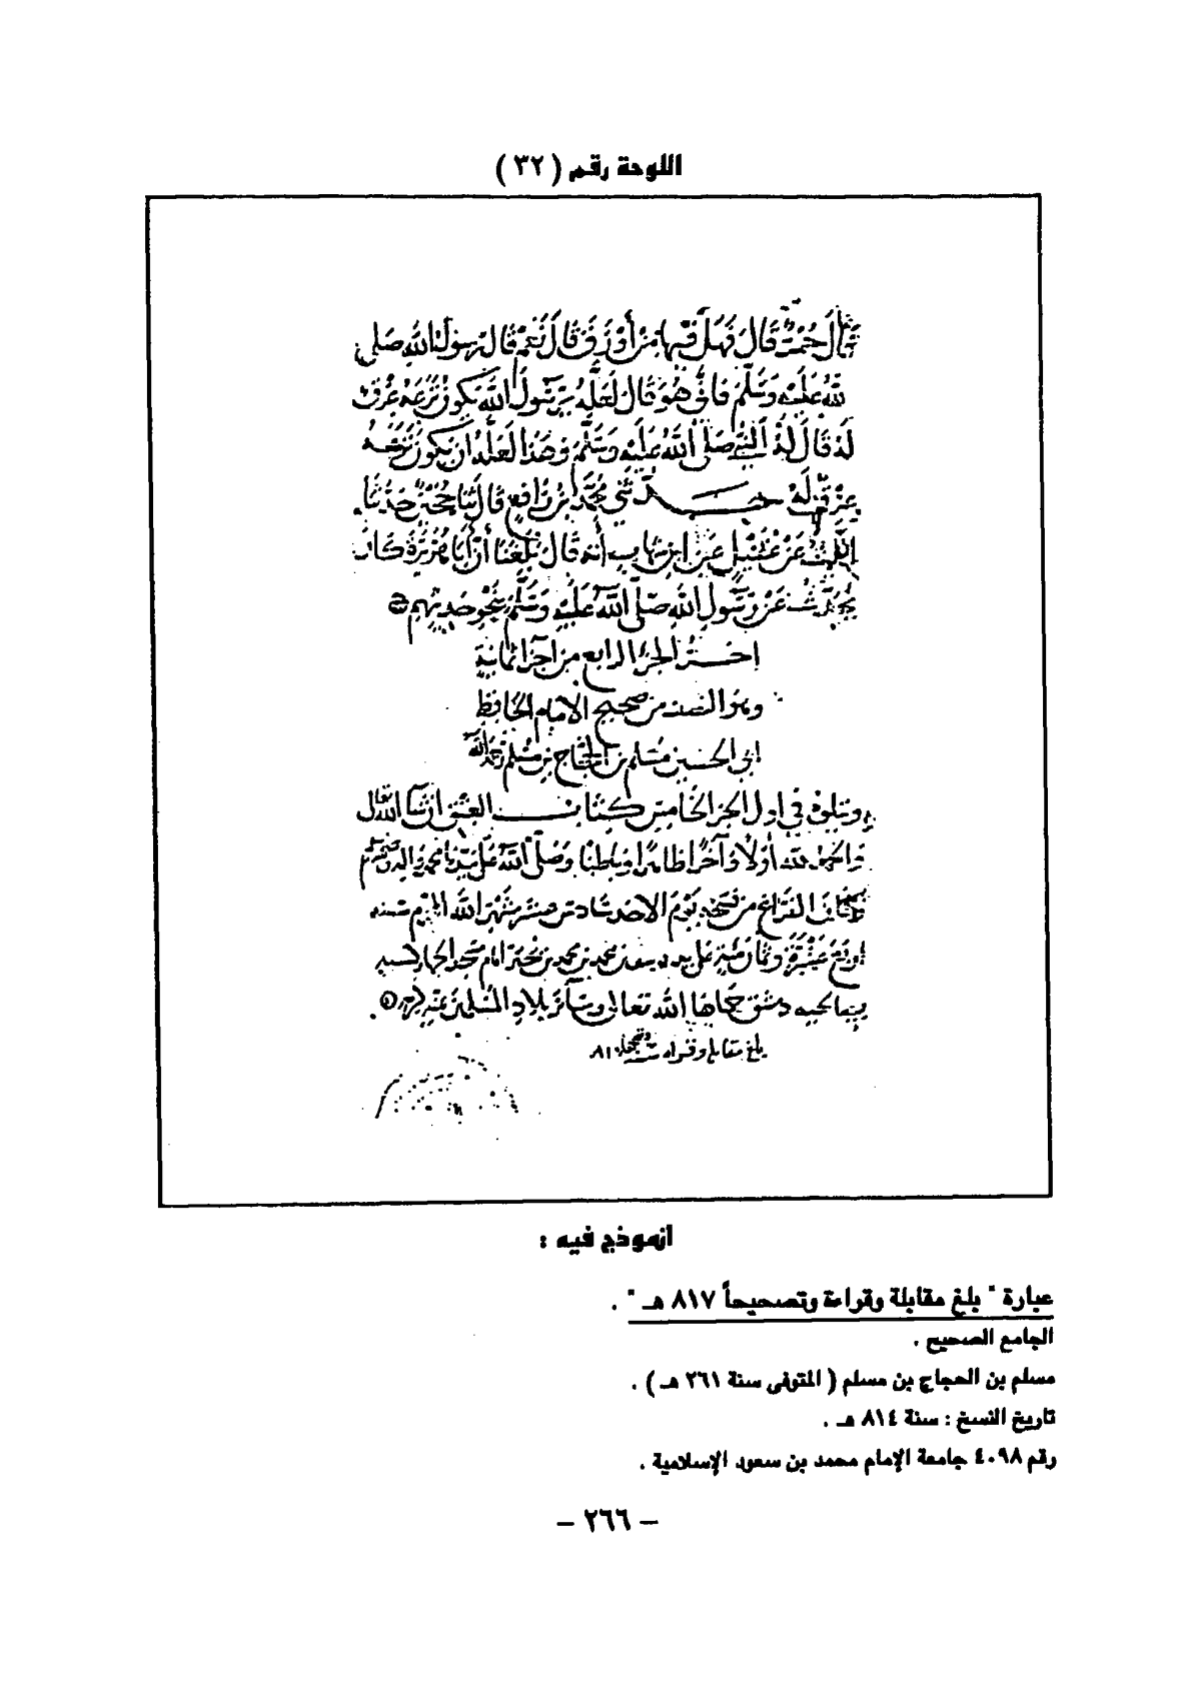 اللوحة رقم ( ٣٢ )
قال حمر قال فهل فيها من أورق قال نعم قال رسول الله صلى
الله عليه وسلم فانى هو قال لعله يرسول الله يكون نزعه عرق
له قال له النبي صلى الله عليه وسلم وهذا لعله ان يكون نزعه
عرق له حدثني محمد بن رافع قال ثنا حجين حدثنا
الليث عن عقيل عن ابن شهاب أنه قال بلغنا أن أبا هريرة كان
يحدث عن رسول الله صلى الله عليه وسلم بنحو حديثهم
اخر الجزء الرابع من أجزا ثمانية
وهو النصف من صحيح الامام الحافظ
ابى الحسين مسلم بن الحجاج بن مسلم رحمه الله
ويتلوه في اول الجزء الخامس كتاب العتق ان شا الله تعالى
والحمد لله أولا وآخرا ظاهرا وباطنا وصلى الله على سيدنا محمد واله وصحبه وسلم
الفراغ من نسخه يوم الاحد سادس عشر شهر الله المحرم سنة
اربع عشرة وثمان مئة على يد محمد بن محمد بن امام مسجد
دمشق حماها الله تعالى وسائر بلاد المسلمين بمنه وكرمه
بلغ مقابلة وقراه
انموذج فيه :
عبارة " بلغ مقابلة وقراءة وتصحيحاً ٨١٧ هـ " .
الجامع الصحيح .
مسلم بن الحجاج بن مسلم ( المتوفى سنة ٢٦١ هـ ) .
تاريخ النسخ : سنة ٨١٤ هـ .
رقم ٤٠٩٨ جامعة الإمام محمد بن سعود الإسلامية .
– ٢٦٦ –